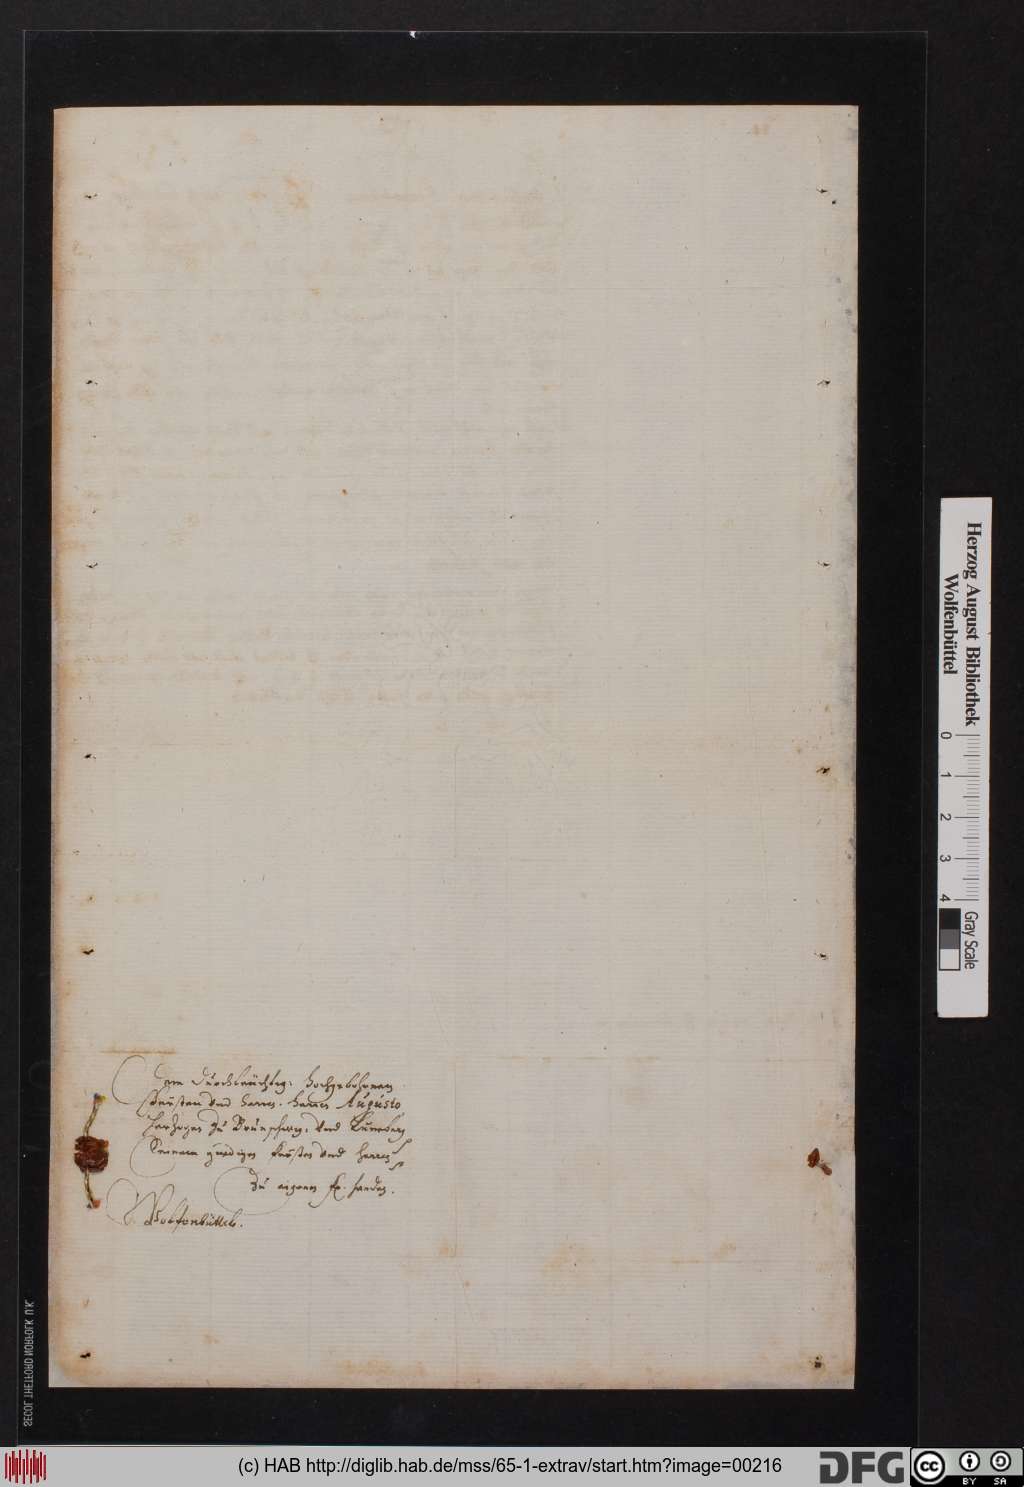 Dem Durchleüchtig: Hochgebohrnen
Fürsten vnd herrn. herrn Augusto,
Herzogen zu Brunschwig: vnd Lunæburg
Seinem gnedigen fürsten vnd herren
Zu eigenen fr. handen.
Wolfenbüttel.
Herzog August Bibliothek
Wolfenbüttel
0 1 2 3 4
Gray Scale
SECOL THETFORD NORFOLK U.K.
(c) HAB http://diglib.hab.de/mss/65-1-extrav/start.htm?image=00216
DFG
cc
BY SA